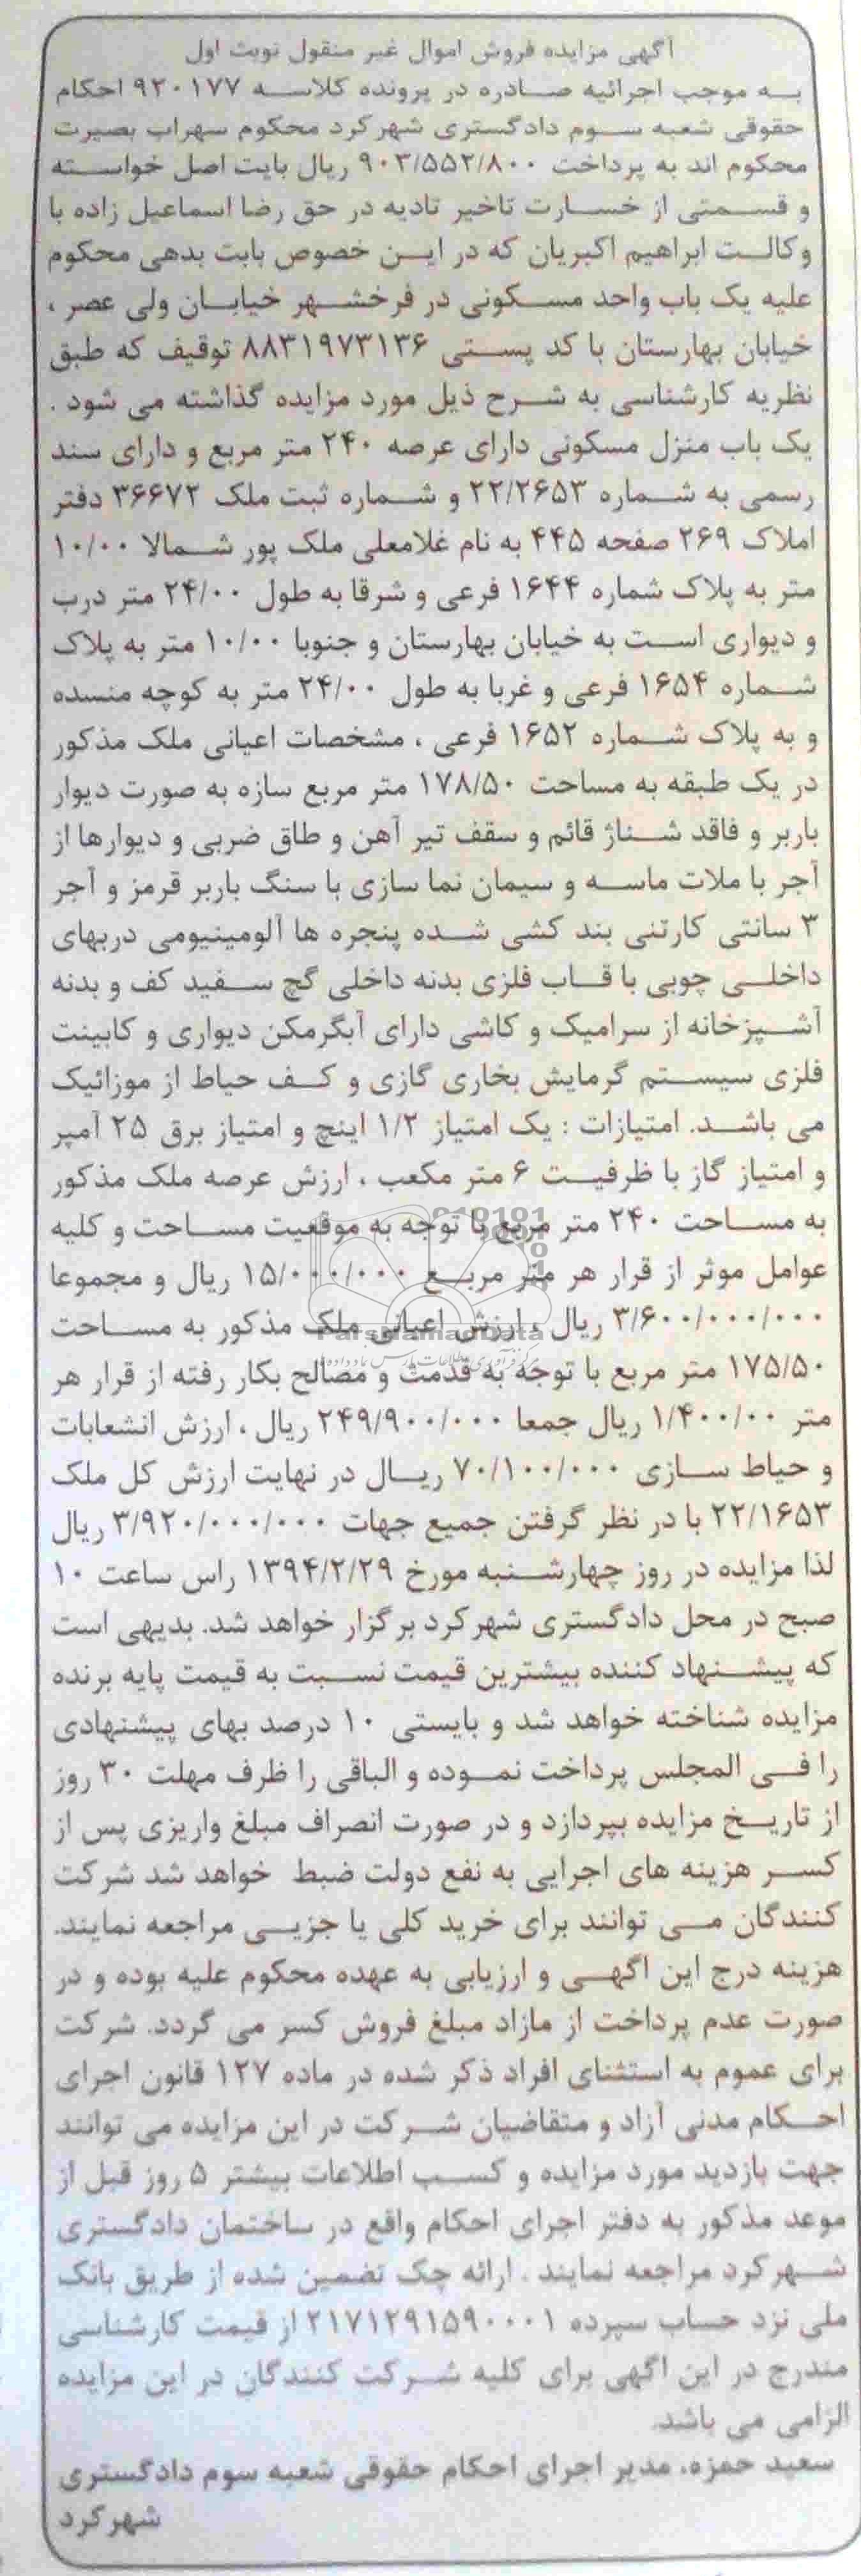 آگهی مزایده فروش اموال غیر منقول نوبت اول
به موجب اجرائیه صادره در پرونده کلاسه ۹۲۰۱۷۷ احکام
حقوقی شعبه سوم دادگستری شهرکرد محکوم سهراب بصیرت
محکوم اند به پرداخت ۹۰۳/۵۵۲/۸۰۰ ریال بابت اصل خواسته
و قسمتی از خسارت تاخیر تادیه در حق رضا اسماعیل زاده با
وکالت ابراهیم اکبریان که در این خصوص بابت بدهی محکوم
علیه یک باب واحد مسکونی در فرخشهر خیابان ولی عصر ،
خیابان بهارستان با کد پستی ۸۸۳۱۹۷۳۱۳۶ توقیف که طبق
نظریه کارشناسی به شرح ذیل مورد مزایده گذاشته می شود .
یک باب منزل مسکونی دارای عرصه ۲۴۰ متر مربع و دارای سند
رسمی به شماره ۲۲/۲۶۵۳ و شماره ثبت ملک ۳۶۶۷۲ دفتر
املاک ۲۶۹ صفحه ۴۴۵ به نام غلامعلی ملک پور شمالا ۱۰/۰۰
متر به پلاک شماره ۱۶۴۴ فرعی و شرقا به طول ۲۴/۰۰ متر درب
و دیواری است به خیابان بهارستان و جنوبا ۱۰/۰۰ متر به پلاک
شماره ۱۶۵۴ فرعی و غربا به طول ۲۴/۰۰ متر به کوچه منسده
و به پلاک شماره ۱۶۵۲ فرعی ، مشخصات اعیانی ملک مذکور
در یک طبقه به مساحت ۱۷۸/۵۰ متر مربع سازه به صورت دیوار
باربر و فاقد شناژ قائم و سقف تیر آهن و طاق ضربی و دیوارها از
آجر با ملات ماسه و سیمان نما سازی با سنگ باربر قرمز و آجر
۳ سانتی کارتنی بند کشی شده پنجره ها آلومینیومی دربهای
داخلی چوبی با قاب فلزی بدنه داخلی گچ سفید کف و بدنه
آشپزخانه از سرامیک و کاشی دارای آبگرمکن دیواری و کابینت
فلزی سیستم گرمایش بخاری گازی و کف حیاط از موزائیک
می باشد. امتیازات : یک امتیاز ۱/۲ اینچ و امتیاز برق ۲۵ آمپر
و امتیاز گاز با ظرفیت ۶ متر مکعب ، ارزش عرصه ملک مذکور
به مساحت ۲۴۰ متر مربع با توجه به موقعیت مساحت و کلیه
عوامل موثر از قرار هر متر مربع ۱۵/۰۰۰/۰۰۰ ریال و مجموعا
۳/۶۰۰/۰۰۰/۰۰۰ ریال ، ارزش اعیانی ملک مذکور به مساحت
ParsNamadData
۱۷۵/۵۰ متر مربع با توجه به قدمت و مصالح بکار رفته از قرار هر
متر ۱/۴۰۰/۰۰ ریال جمعا ۲۴۹/۹۰۰/۰۰۰ ریال ، ارزش انشعابات
و حیاط سازی ۷۰/۱۰۰/۰۰۰ ریال در نهایت ارزش کل ملک
۲۲/۱۶۵۳ با در نظر گرفتن جمیع جهات ۳/۹۲۰/۰۰۰/۰۰۰ ریال
لذا مزایده در روز چهارشنبه مورخ ۱۳۹۴/۲/۲۹ راس ساعت ۱۰
صبح در محل دادگستری شهرکرد برگزار خواهد شد. بدیهی است
که پیشنهاد کننده بیشترین قیمت نسبت به قیمت پایه برنده
مزایده شناخته خواهد شد و بایستی ۱۰ درصد بهای پیشنهادی
را فی المجلس پرداخت نموده و الباقی را ظرف مهلت ۳۰ روز
از تاریخ مزایده بپردازد و در صورت انصراف مبلغ واریزی پس از
کسر هزینه های اجرایی به نفع دولت ضبط خواهد شد شرکت
کنندگان می توانند برای خرید کلی یا جزیی مراجعه نمایند.
هزینه درج این اگهی و ارزیابی به عهده محکوم علیه بوده و در
صورت عدم پرداخت از مازاد مبلغ فروش کسر می گردد. شرکت
برای عموم به استثنای افراد ذکر شده در ماده ۱۲۷ قانون اجرای
احکام مدنی آزاد و متقاضیان شرکت در این مزایده می توانند
جهت بازدید مورد مزایده و کسب اطلاعات بیشتر ۵ روز قبل از
موعد مذکور به دفتر اجرای احکام واقع در ساختمان دادگستری
شهرکرد مراجعه نمایند . ارائه چک تضمین شده از طریق بانک
ملی نزد حساب سپرده ۲۱۷۱۲۹۱۵۹۰۰۰۱ از قیمت کارشناسی
مندرج در این اگهی برای کلیه شرکت کنندگان در این مزایده
الزامی می باشد.
سعید حمزه، مدیر اجرای احکام حقوقی شعبه سوم دادگستری
شهرکرد